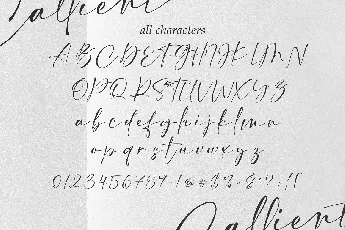 Callient
all characters
A B C D E F G H I J K L M N
O P Q R S T U V W X Y Z
a b c d e f g h i j k l m n
o p q r s t u v w x y z
0 1 2 3 4 5 6 7 8 9
Callient